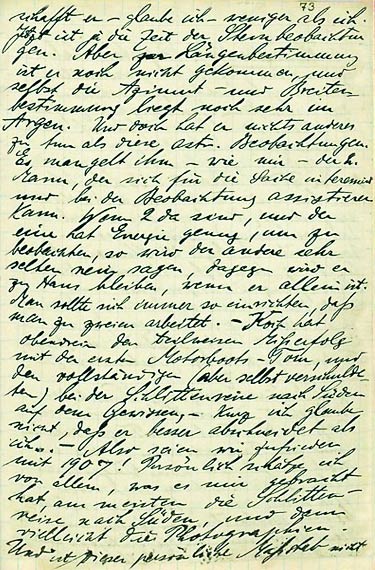 73
schafft er – glaube ich – weniger als ich.
Jetzt ist ja die Zeit der Sternbeobachtun
gen. Aber zur Längenbestimmung
ist er noch nicht gekommen, und
selbst die Azimut – und Breiten-
bestimmung liegt noch sehr im
Argen. Und doch hat er nichts anderes
zu tun als diese astr. Beobachtungen.
Es mangelt ihm – wie mir – der
kann, der sich für die Sache interessiert
und bei der Beobachtung assistieren
kann. Wenn 2 da sind, und der
eine hat Energie genug, um zu
beobachten, so wird der andere sehr
selten nein sagen, dagegen wird er
zu Haus bleiben, wenn er allein ist.
Man sollte sich immer so einrichten, daß
man zu zweien arbeitet. – Koch hat
obendrein den teilweisen Mißerfolg
mit der ersten Motorboots-Tour, und
den vollständigen (aber selbst verschulde-
ten) bei der Schlittenreise nach Süden
auf dem Gewissen – Kurz ich glaube
nicht, daß er besser abschneidet als
ich. – Also seien wir zufrieden
mit 1907! Persönlich schätze ich
vor allem, was es mir gebracht
hat, am meisten die Schlitten-
reise nach Süden, und dann
vielleicht die Photographien.
Und ist dieser persönliche Maßstab nicht